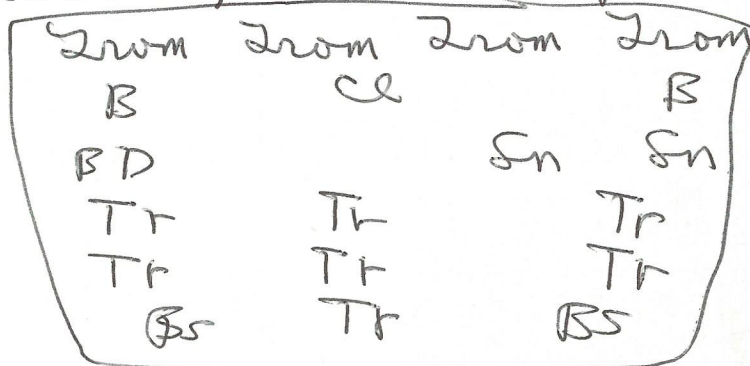 Trom Trom Trom Trom
B Cl B
BD Sn Sn
Tr Tr Tr
Tr Tr Tr
Bs Tr BS